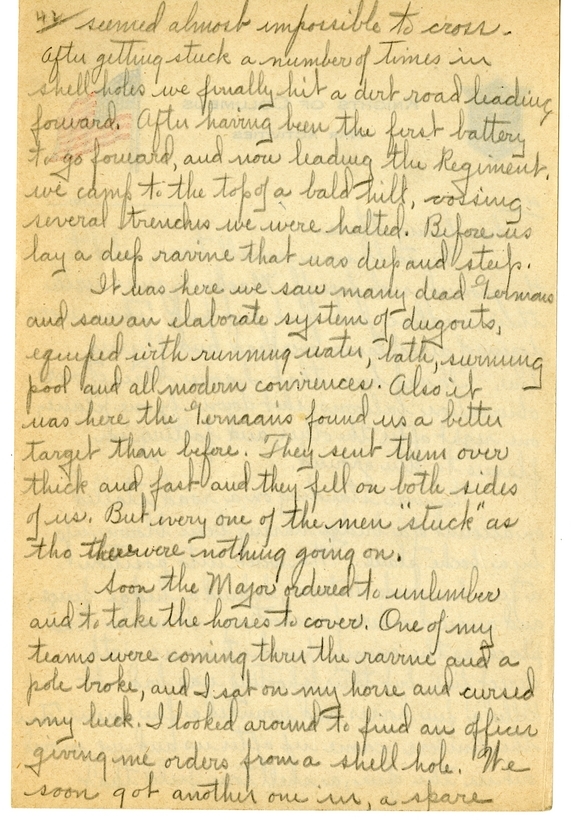 42 seemed almost impossible to cross.
After getting stuck a number of times in
shell holes we finally hit a dirt road leading
forward. After having been the first battery
to go forward, and now leading the Regiment.
we camp to the top of a bald hill, crossing
several trenches we were halted. Before us
lay a deep ravine that was deep and steep.
It was here we saw many dead Germans
and saw an elaborate system of dugouts,
equiped with running water, bath, swimming
pool and all modern convinences. Also it
was here the Germans found us a better
target than before. They sent them over
thick and fast and they fell on both sides
of us. But every one of the men "stuck" as
tho there were nothing going on.
Soon the Major ordered to unlimber
and to take the horses to cover. One of my
teams were coming thru the ravine and a
pole broke, and I sat on my horse and cursed
my luck. I looked around to find an officer
giving me orders from a shell hole. We
soon got another one in, a spare